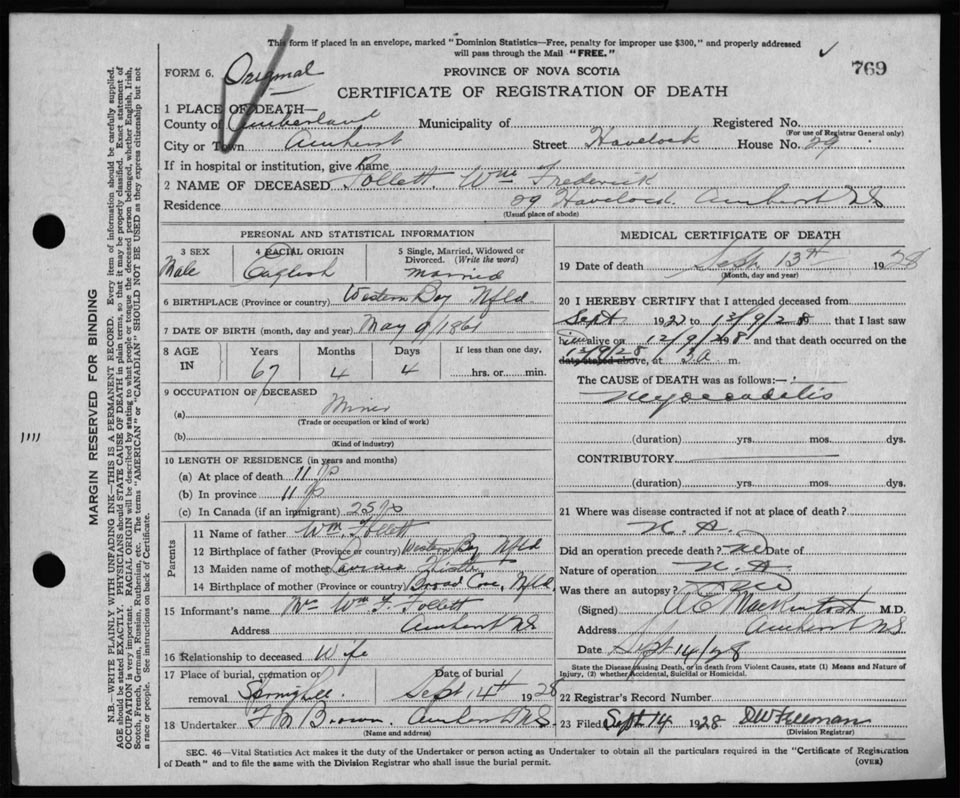 This form if placed in an envelope, marked "Dominion Statistics—Free, penalty for improper use $300," and properly addressed
will pass through the Mail "FREE."
769
FORM 6. Original
PROVINCE OF NOVA SCOTIA
CERTIFICATE OF REGISTRATION OF DEATH
1 PLACE OF DEATH—
County of Cumberland Municipality of Registered No.
(For use of Registrar General only)
City or Town Amherst Street Havelock House No. 29
If in hospital or institution, give name
2 NAME OF DECEASED Follett. Wm Frederick
Residence 29 Havelock. Amherst NS
(Usual place of abode)
PERSONAL AND STATISTICAL INFORMATION
3 SEX 4 RACIAL ORIGIN 5 Single, Married, Widowed or
Divorced. (Write the word)
Male English Married
6 BIRTHPLACE (Province or country) Western Bay Nfld.
7 DATE OF BIRTH (month, day and year) May 9/1861
8 AGE IN Years Months Days If less than one day,
67 4 4 hrs. or min.
9 OCCUPATION OF DECEASED
(a) Miner
(Trade or occupation or kind of work)
(b)
(Kind of industry)
10 LENGTH OF RESIDENCE (in years and months)
(a) At place of death 11 yrs
(b) In province 11 yrs
(c) In Canada (if an immigrant) 25 yrs
Parents
11 Name of father Wm. Follett
12 Birthplace of father (Province or country) Western Bay Nfld
13 Maiden name of mother
14 Birthplace of mother (Province or country) Broad Cove, Nfld.
15 Informant's name Mrs Wm F. Follett
Address Amherst NS.
16 Relationship to deceased Wife
17 Place of burial, cremation or Date of burial
removal Springhill. Sept 14th 1928
18 Undertaker F M Brown. Amherst N.S.
(Name and address)
MEDICAL CERTIFICATE OF DEATH
19 Date of death Sept 13th 1928
(Month, day and year)
20 I HEREBY CERTIFY that I attended deceased from
Sept 192 to 13/9/28 that I last saw
him alive on 12/9/28 and that death occurred on the
13/9/28 date stated above, at m.
The CAUSE OF DEATH was as follows:—
(duration) yrs. mos. dys.
CONTRIBUTORY
(duration) yrs. mos. dys.
21 Where was disease contracted if not at place of death?
N. A.
Did an operation precede death? no Date of
Nature of operation N. A
Was there an autopsy? no
(Signed) A E MacKintosh M.D.
Address Amherst N.S.
Date Sept 14/28
State the Disease causing Death, or in death from Violent Causes, state (1) Means and Nature of
Injury, (2) whether Accidental, Suicidal or Homicidal.
22 Registrar's Record Number
23 Filed Sept 14 1928 D W Freeman
(Division Registrar)
SEC. 46—Vital Statistics Act makes it the duty of the Undertaker or person acting as Undertaker to obtain all the particulars required in the "Certificate of Registration
of Death" and to file the same with the Division Registrar who shall issue the burial permit. (OVER)
MARGIN RESERVED FOR BINDING
N.B.—WRITE PLAINLY WITH UNFADING INK—THIS IS A PERMANENT RECORD. Every item of information should be carefully supplied.
AGE should be stated EXACTLY. PHYSICIANS should STATE CAUSE OF DEATH in plain terms, so that it may be properly classified. Exact statement of
OCCUPATION is very important. RACIAL ORIGIN will be described by stating to what people or tongue the deceased person belonged, whether English, Irish,
Scotch, French, German, Russian, Ruthenian, etc. The terms "AMERICAN" or "CANADIAN" SHOULD NOT BE USED as they express citizenship but not
a race or people. See instructions on back of Certificate.